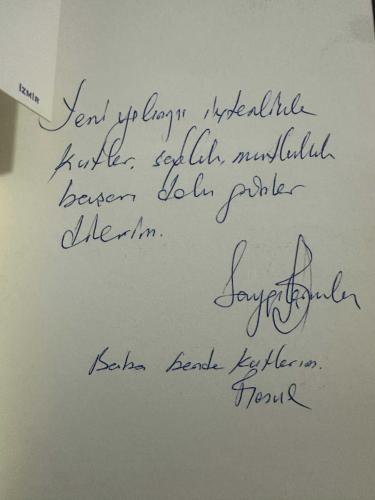 İZMİR
Yeni yılınızı içtenlikle
kutlar, sağlık, mutluluk
başarı dolu günler
dilerim.
Saygılarımla
Baba bende kutlarım.